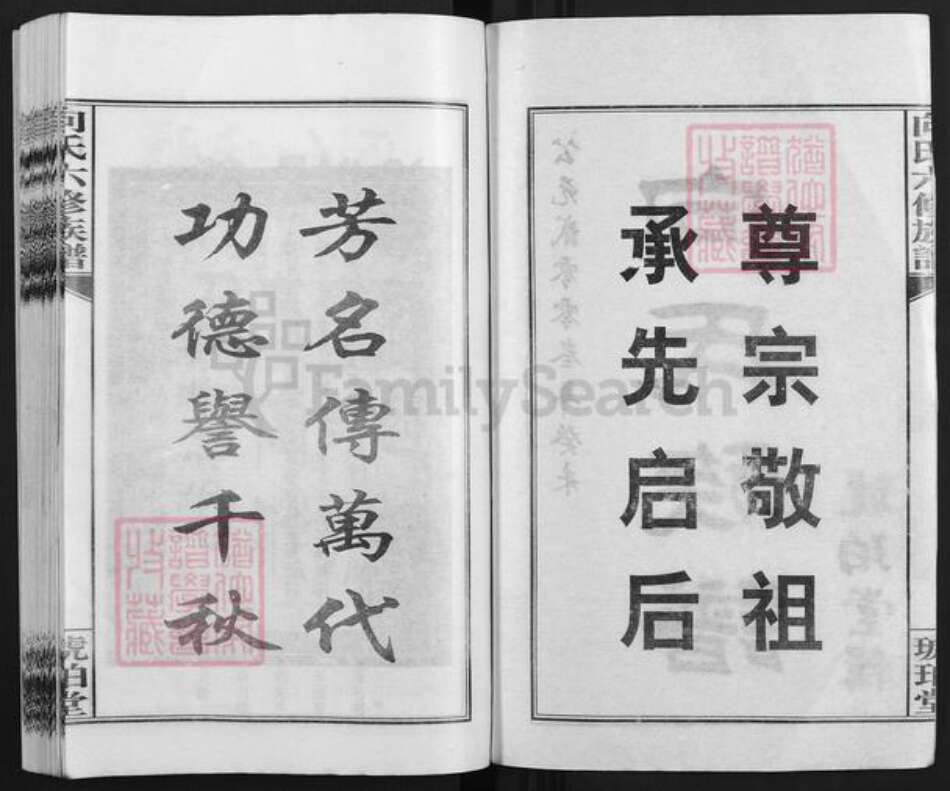 尊宗敬祖
承先启后
向氏六修族譜
琥珀堂
芳名傳萬代
功德譽千秋
向氏六修族譜
琥珀堂
FamilySearch